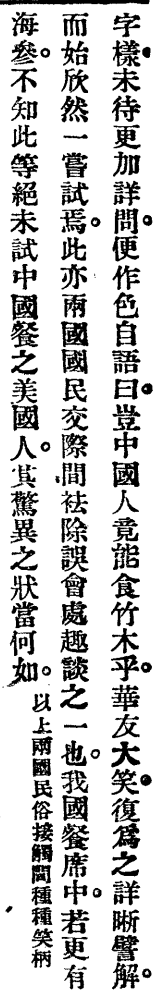 字樣未待更加詳問。便作色自語曰。豈中國人竟能食竹木乎。華友大笑復爲之詳晰譬解。
而始欣然一嘗試焉。此亦兩國國民交際間袪除誤會處趣談之一也。我國餐席中。若更有
海參。不知此等絕未試中國餐之美國人。其驚異之狀當何如。以上兩國民俗接觸間種種笑柄